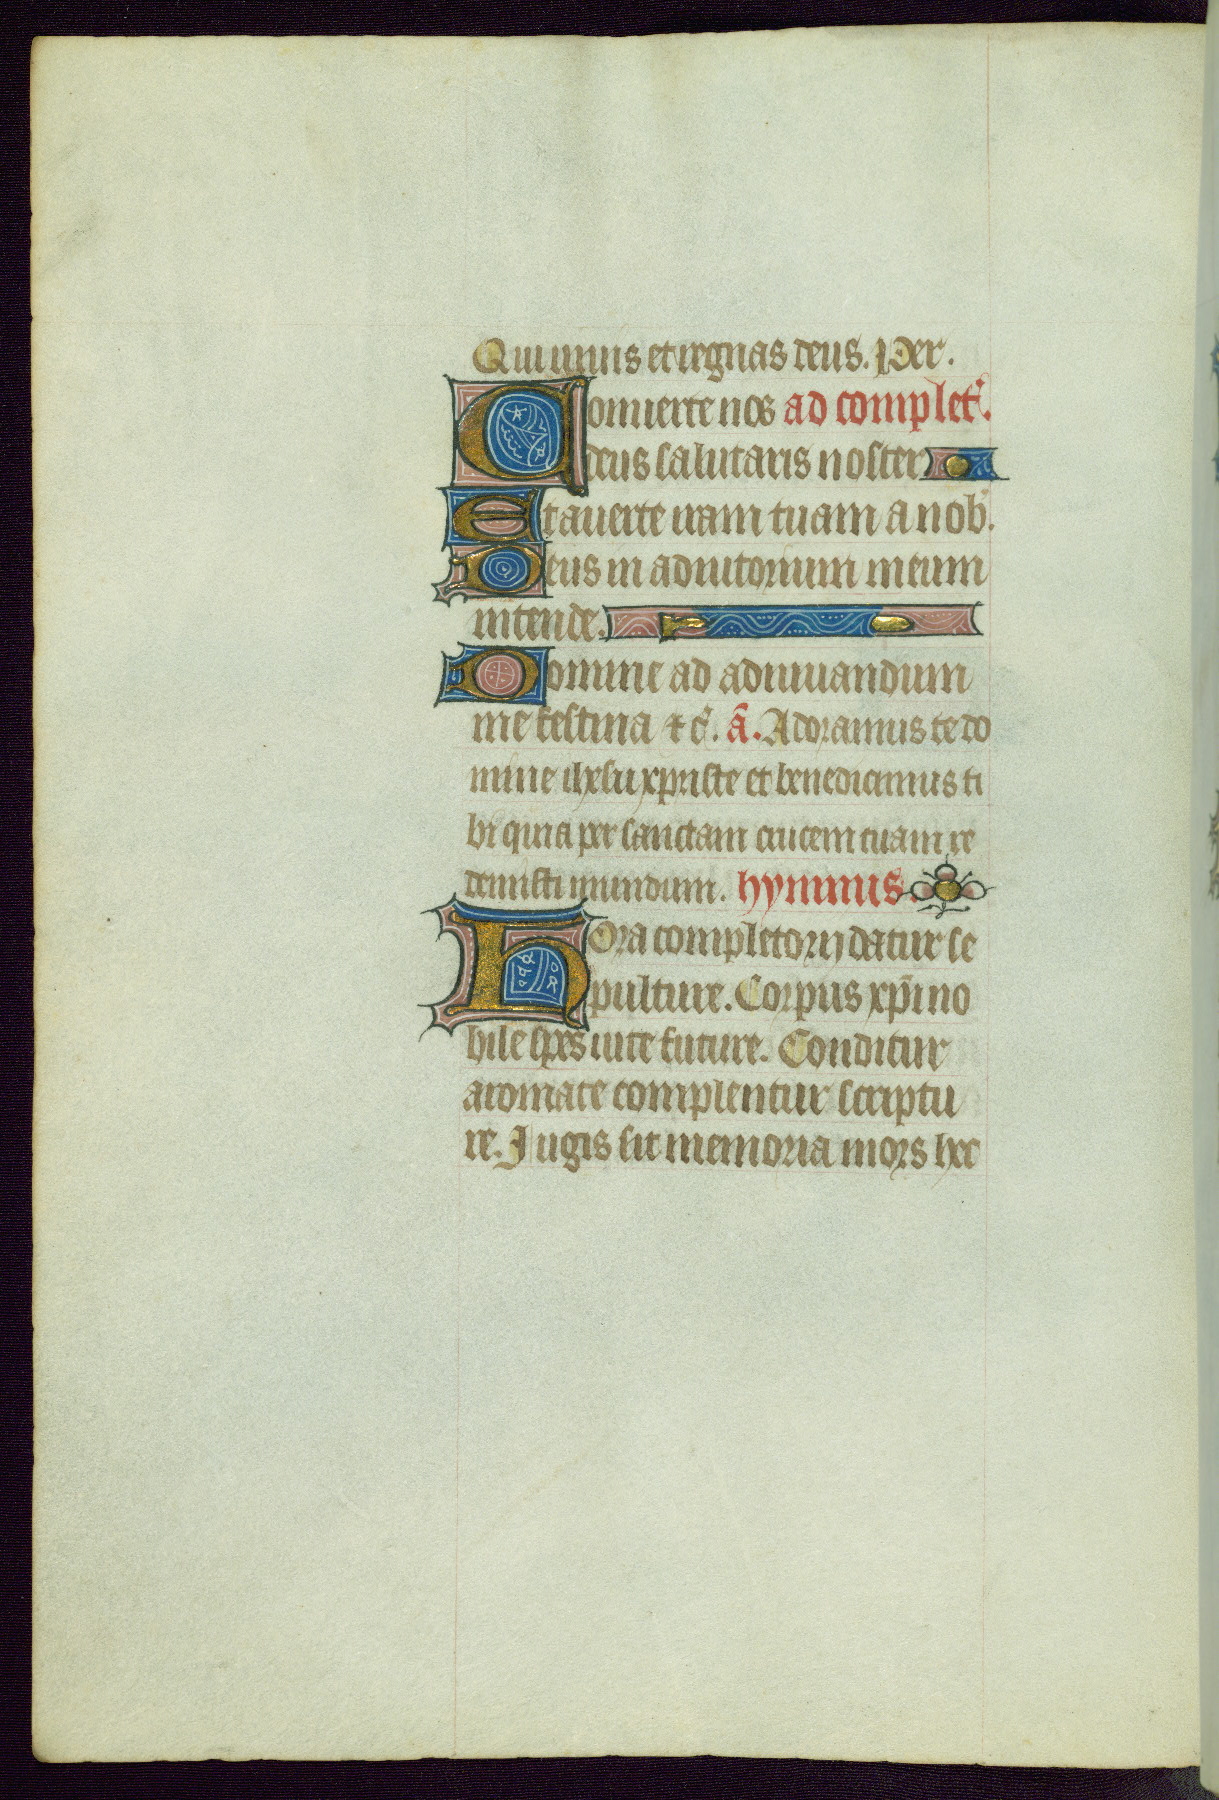 Qui uiuis et regnas deus. Per.
Conuerte nos ad complet'.
deus salutaris noster
Et auerte iram tuam a nob'.
Deus in adiutorium meum
intende.
Domine ad adiuuandum
me festina ⁊ c̃. ã. Adoramus te do
mine ihesu xpriste et benedicimus ti
bi quia per sanctam crucem tuam re
demisti mundum. hymnus.
Hora completorij datur se
pulture. Corpus xp̃i no
bile spes uite future. Conditur
aromate complentur scriptu
re. Jugis sit memoria mors hec